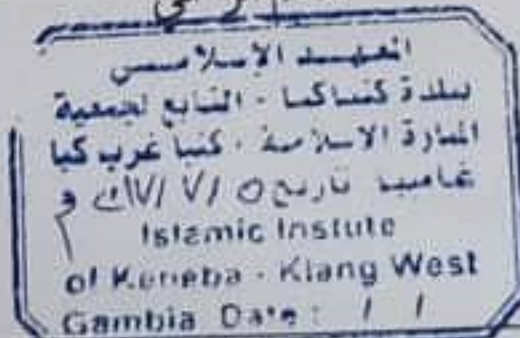 المعهد الإسلامي
ببلدة كنباكبا - التابع لجمعية
المنارة الاسلامية - كنبا غرب كبا
غامبيا تاريخ
Islamic Instute
of Keneba - Kiang West
Gambia Date: / /